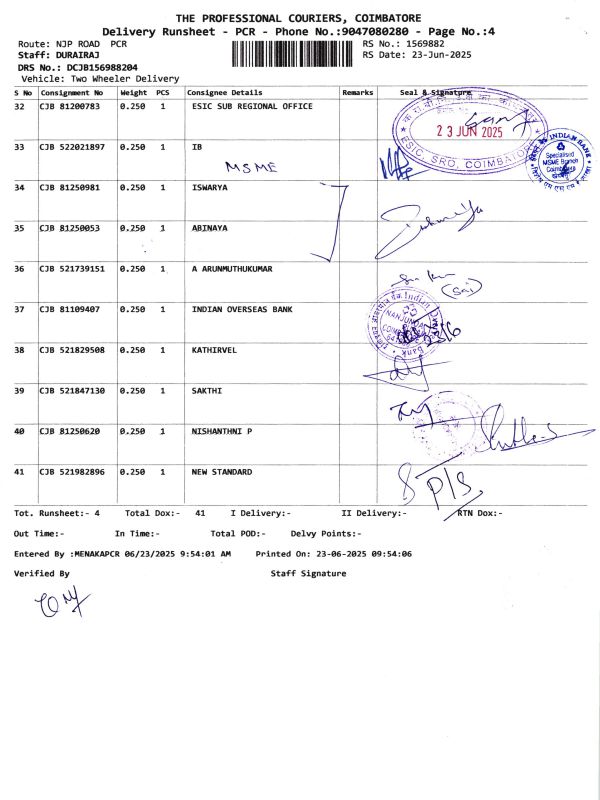 THE PROFESSIONAL COURIERS, COIMBATORE
Delivery Runsheet - PCR - Phone No.:9047080280 - Page No.:4
Route: NJP ROAD PCR
RS No.: 1569882
Staff: DURAIRAJ
RS Date: 23-Jun-2025
DRS No.: DCJB156988204
Vehicle: Two Wheeler Delivery
S No Consignment No Weight PCS Consignee Details Remarks Seal & Signature
32 CJB 81200783 0.250 1 ESIC SUB REGIONAL OFFICE
23 JUN 2025
ESIC, SRO, COIMBATORE
33 CJB 522021897 0.250 1 IB
MSME
INDIAN BANK
Specialised
MSME Branch
Coimbatore
34 CJB 81250981 0.250 1 ISWARYA
35 CJB 81250053 0.250 1 ABINAYA
36 CJB 521739151 0.250 1 A ARUNMUTHUKUMAR
(Sai)
37 CJB 81109407 0.250 1 INDIAN OVERSEAS BANK
23/6
38 CJB 521829508 0.250 1 KATHIRVEL
39 CJB 521847130 0.250 1 SAKTHI
40 CJB 81250620 0.250 1 NISHANTHNI P
41 CJB 521982896 0.250 1 NEW STANDARD
P/S
Tot. Runsheet:- 4 Total Dox:- 41 I Delivery:- II Delivery:- RTN Dox:-
Out Time:- In Time:- Total POD:- Delvy Points:-
Entered By :MENAKAPCR 06/23/2025 9:54:01 AM Printed On: 23-06-2025 09:54:06
Verified By Staff Signature